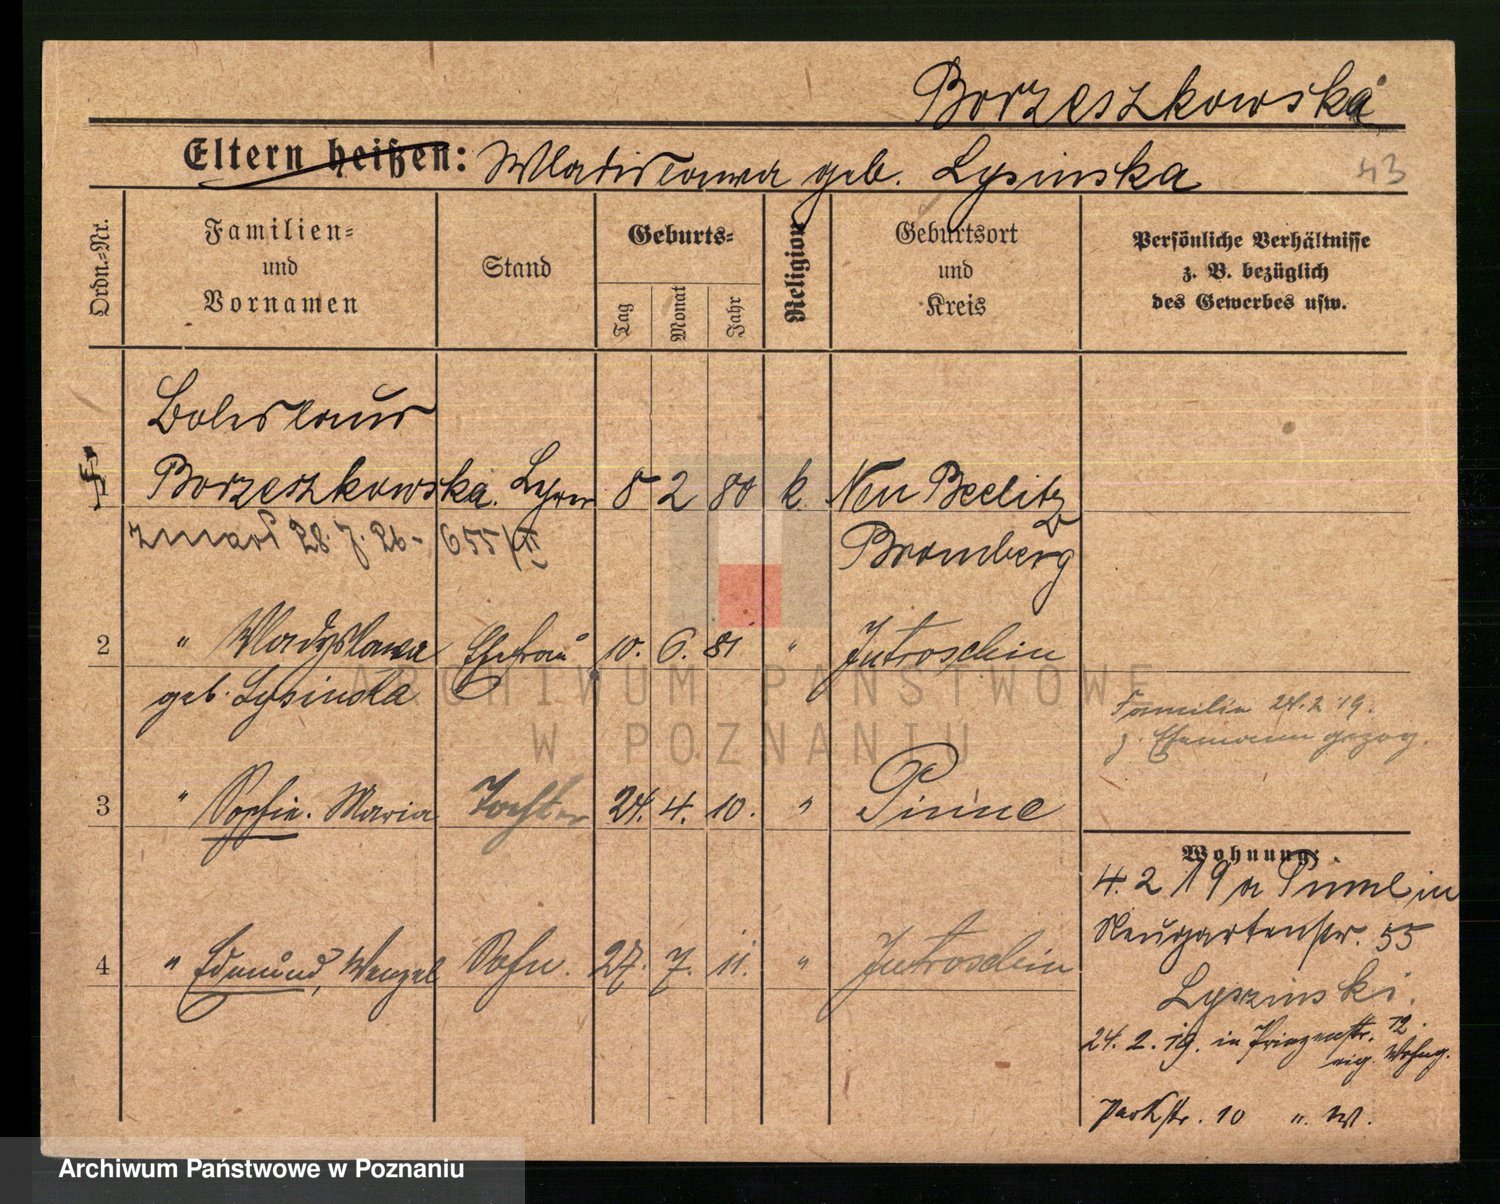 Borzeszkowska
Eltern heißen: Wladislawa geb. Lysinska
43
Ordn.-Nr.
Familien-
und
Vornamen
Stand
Geburts-
Tag
Monat
Jahr
Religion
Geburtsort
und
Kreis
Persönliche Verhältnisse
z. B. bezüglich
des Gewerbes usw.
Boleslaus
Borzeszkowska. 8 2 80 k. Neu Beelitz
zmarł 28.7.26 - 655/II Bromberg
2 " Wladyslawa Ehefrau 10. 6. 81 " Jutroschin
geb. Lysinska
Familie 24.2.19.
z. Ehemann gezog.
3 " Sophie. Maria Tochter 24. 4. 10. " Pinne
Wohnung:
4. 2 19 a Pinne in
Neugartenstr. 55
4 " Edmund, Wenzel Sohn. 27. 7. 11. " Jutroschin
Lyszinski.
24. 2. 19. in Prinzenstr. 12.
eig. Wohng.
Parkstr. 10 " W.
ARCHIWUM PAŃSTWOWE
W POZNANIU
Archiwum Państwowe w Poznaniu